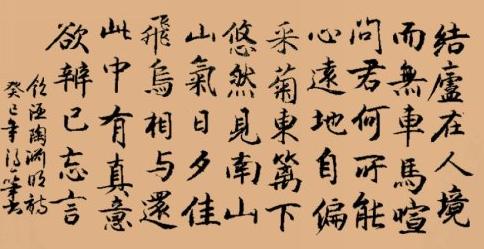 結廬在人境
而無車馬喧
問君何所能
心遠地自偏
采菊東籬下
悠然見南山
山氣日夕佳
飛鳥相与還
此中有真意
欲辨已忘言
飲酒陶渊明詩
癸巳年